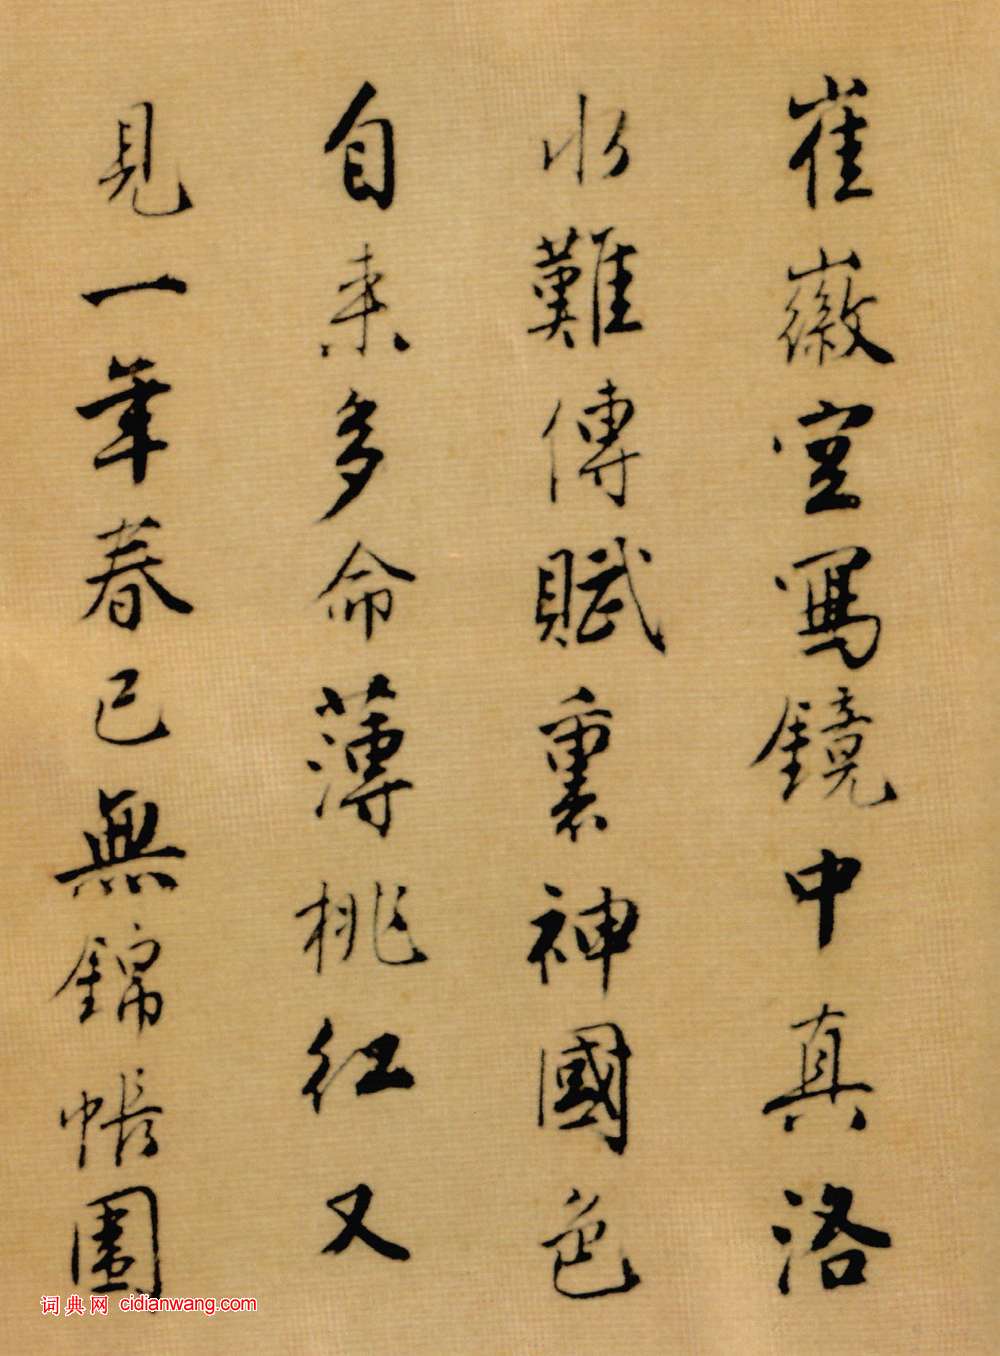 崔徽空寫鏡中真洛
水難傳賦裏神國色
自來多命薄桃紅又
見一年春已無錦帳圍
词典网 cidianwang.com